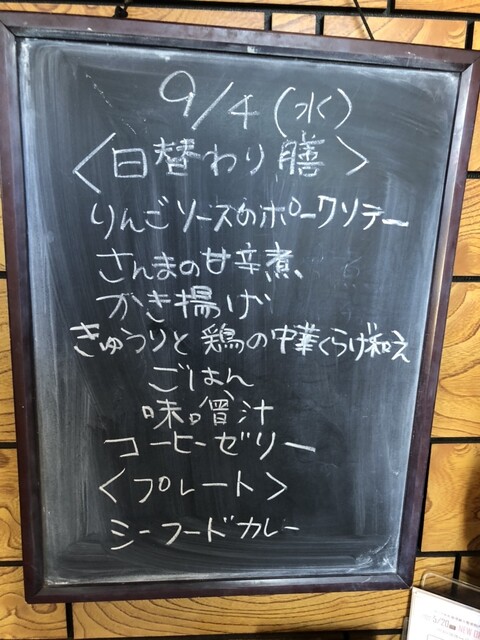 9/4(水)
<日替わり膳>
りんごソースのポークソテー
さんまの甘辛煮
かき揚げ
きゅうりと鶏の中華くらげ和え
ごはん
味噌汁
コーヒーゼリー
<プレート>
シーフードカレー
5/20